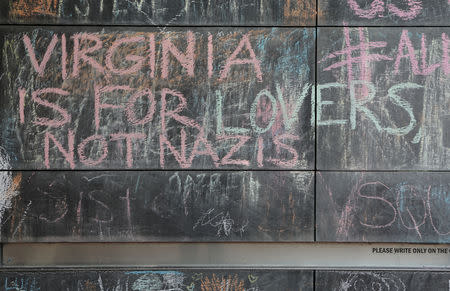 VIRGINIA #ALL
IS FOR LOVERS,
NOT NAZIS
PLEASE WRITE ONLY ON THE